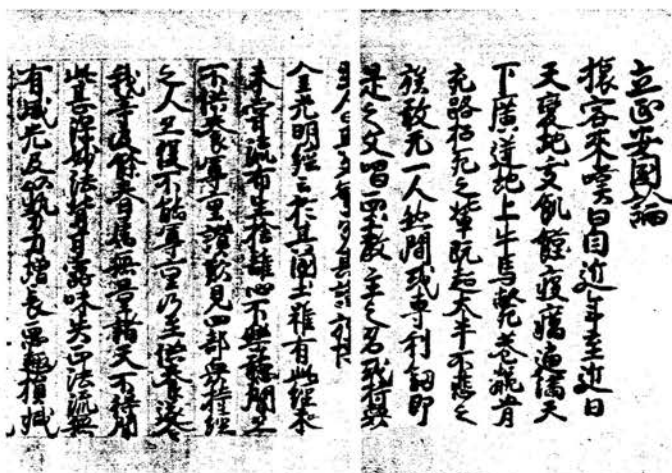 立正安國論
旅客來嘆曰自近年至近日
天變地夭飢饉疫癘遍滿天
下廣迸地上牛馬斃巷骸骨
充路招死之輩既超大半不悲之
族敢无一人然間或專利劍即
是之文唱西土教主之名或持衆
金光明經云於其國土雖有此經
未嘗流布生捨離心不樂聽聞亦
不供養尊重讚歎見四部衆持經
之人亦復不能尊重乃至供養遂令
我等及餘眷屬無量諸天不得聞
此甚深妙法背甘露味失正法流無
有威光及以勢力增長惡趣損減